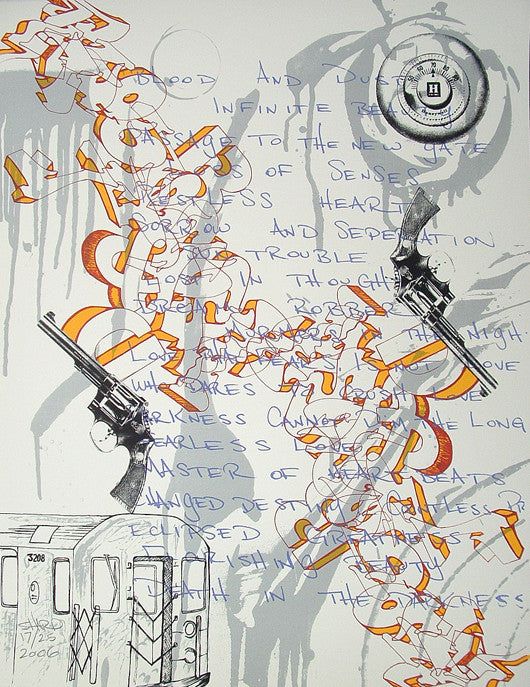 BLOOD AND
INFINITE
PASSAGE TO THE NEW GATE
OF SENSES
RESTLESS HEART
SORROW AND SEPERATION
TROUBLE
LOST IN THOUGHT
ROBBER
IN THE NIGH
LOVE THAT FEARS IS NOT LOVE
WHO DARES TO LOVE
DARKNESS CANNOT DIM THE LONG
FEARLESS LOVER
MASTER OF HEART BEATS
CHANGED DESTINY COUNTLESS PR
ECLIPSED GREATNESS
FLOURISHING BEAUTY
DEATH IN THE DARKNESS
H
Honeywell
3208
SHARP
17/25
2006